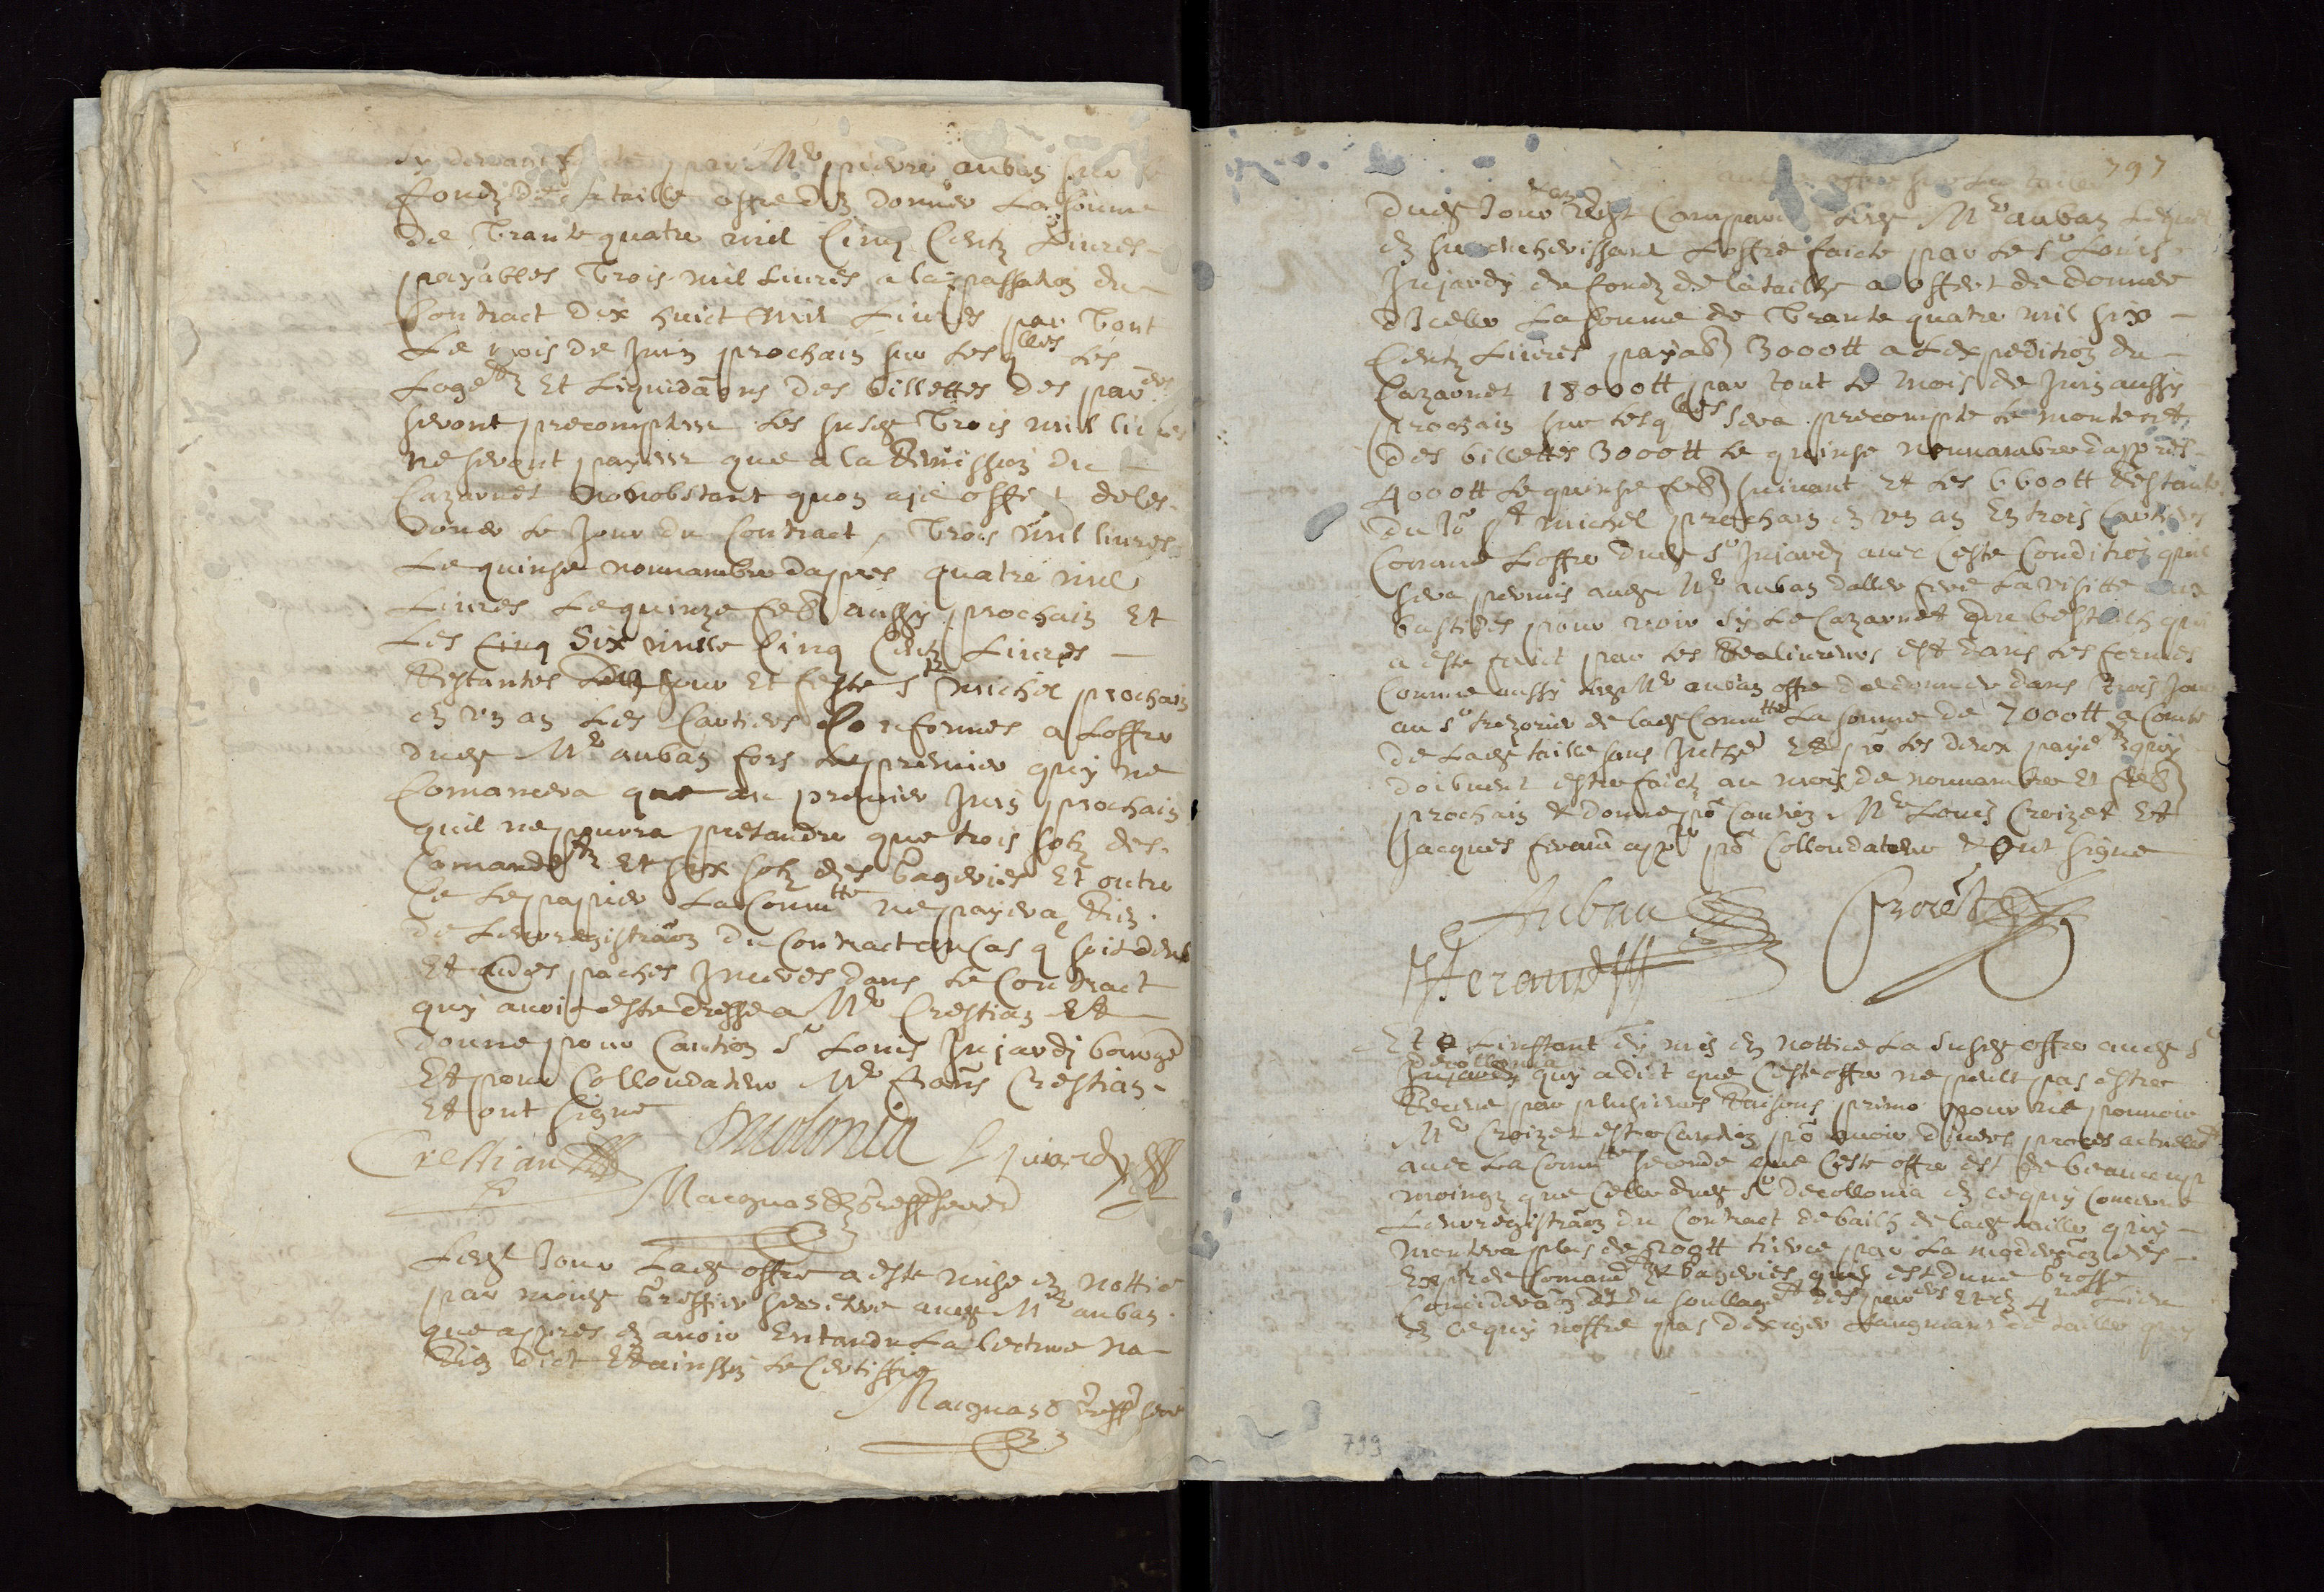 par Mr pierre auban sur
fondz de la taille offre den donner La somme
de Trante quatre mil Cinq Centz Liures
payables Trois mil Liures a la passation du
Contract dix huict mil Liures par tout
Le mois de Juin prochain sur Lesqlles les
Logemtz Et Liquidaons des billettes des parers
seront precomptees Les susd Trois mil liures
ne seront payees que a la Remission du
Cazarnet nonobstant quon aye offert deles
doner Le Jour du Contract, Trois mil liures
Le quinse nouuambre dapres quatre mil
Liures Le quinze feb aussy prochain Et
Les Cinq Six mille Cinq Centz Liures
Restantes Jour Et feste St michel prochain
en vn an Les Cartiers Conformes a Loffre
dud Mr auban fors Le premier quy ne
Comancera que au premier Juin prochain
quil ne pourra pretandre que trois solz des
Comandemtz Et six solz des Gageries Et outre
Ce Le papier La Commtte ne payera Rien
de Lenregistraon du Contract en Cas ql soit deub
Et aues paches Inceres dans Le Contract
quy auoit este dresse a Mr Crestian Et
donne pour Caution Sr Louis Jujardy bourge
Et pour Colloudateur Mr frans Crestian
Et ont signe
Crestian Decolonia L Jujardy
Macquan greff secre
Led Jour Lad offre a este mise en nottie
par moy d Greffier secretre aud Mr auban
que appres en auoir Entandu La lecture na
Rien dict Et ainssy Le Certiffie
Macquan greff secre
797
Dud Jour Est Comparu Led Mr auban Lequel
en surencherissant Loffre faicte par le Sr Louis
Jujardy du fondz de la taille a offert de donner
dIcelle La somme de Trante quatre mil six
Centz Liures payab 3000tt a Lexpedition du
Cazarnet 18000tt par tout Le mois de Juin aussy
prochain sur lesqlles sera precompte Le montent
des billettes 3000tt Le quinse nouuambre dappres
4000tt Le quinse feb suiuant Et Les 6600tt Restante
du Jo St michel prochain en vn an En trois Cartiers
Comme Loffre dud Sr Jujardy auec Ceste Condition quil
sera permis aud Mr auban daller fere La visitte aux
bastides pour voir sy Le Cazarnet du bestailh qui
a este faict par Les Realiureurs est dans Les formes
Comme aussy Led Mr auban offre de donner dans trois Jours
au Sr trezorier de lad Commtte La somme de 7000tt a Conte
de Lad taille sans Inthe Et po Les deux payemtz quy
doibuent estre faictz au mois de nouuambre Et feb
prochain Et donne po Caution Mr Louis Croizet Et
Jacques feraud appre po Colloudateur Et Ont signe
Auban Croiset
JFeraud
Et a Linstant Jy mis en nottice La susd offre aud Sr
decollonia
Jujardy quy a dict que Ceste offre ne peult pas estre
Receue par plusieurs Raisons primo pour ne pouuoir
Mr Croizet estre Caution po auoir diuers proces actuellemt
auec La Commtte seconde que Ceste offre est de beaucoup
moingz que Celle dud Sr decollonia en ce quy Concerne
Lenregistraon du Contract de bailh de lad taille quy
montera plus de 500tt tierce par La moderaon des
de Comandtz Et bageries quy est dune Grosse
Consideraon Et du soullagemt des parers Et en 4me Lieu
en ce quy noffre pas dexiger Laugmant de taille quy
799